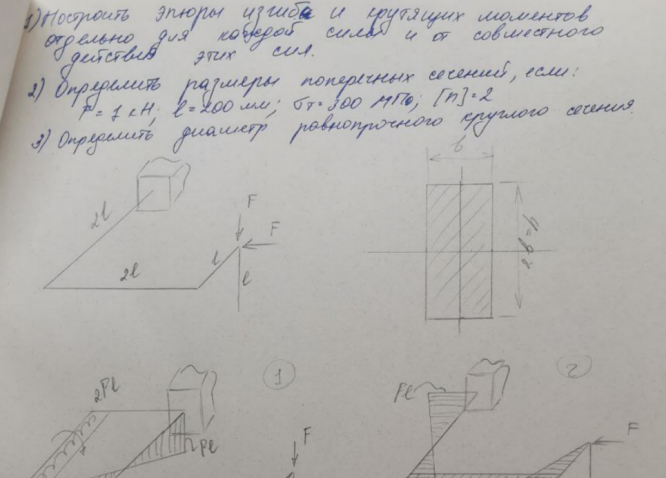 1) Построить эпюры изгиба и крутящих моментов
отдельно для каждой силы и от совместного
действия этих сил.
2) Определить размеры поперечных сечений, если:
F = 1 кН; l = 200 мм; σт = 300 МПа; [n] = 2
3) Определить диаметр равнопрочного круглого сечения.
2l
2l
l
F
F
l
b
1
2Fl
F
2
Fl
F